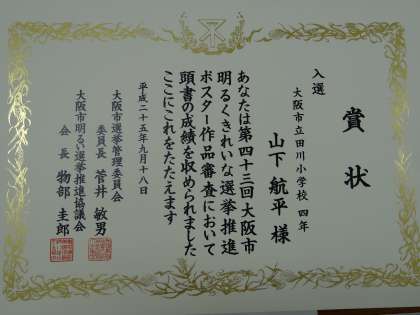 賞状
入選
大阪市立田川小学校 四年
山下 航平 様
あなたは第四十三回大阪市
明るくきれいな選挙推進
ポスター作品審査において
頭書の成績を収められました
ここにこれをたたえます
平成二十五年九月十八日
大阪市選挙管理委員会
委員長 菅井 敏男
大阪市明るい選挙推進協議会
会長 物部 圭郎